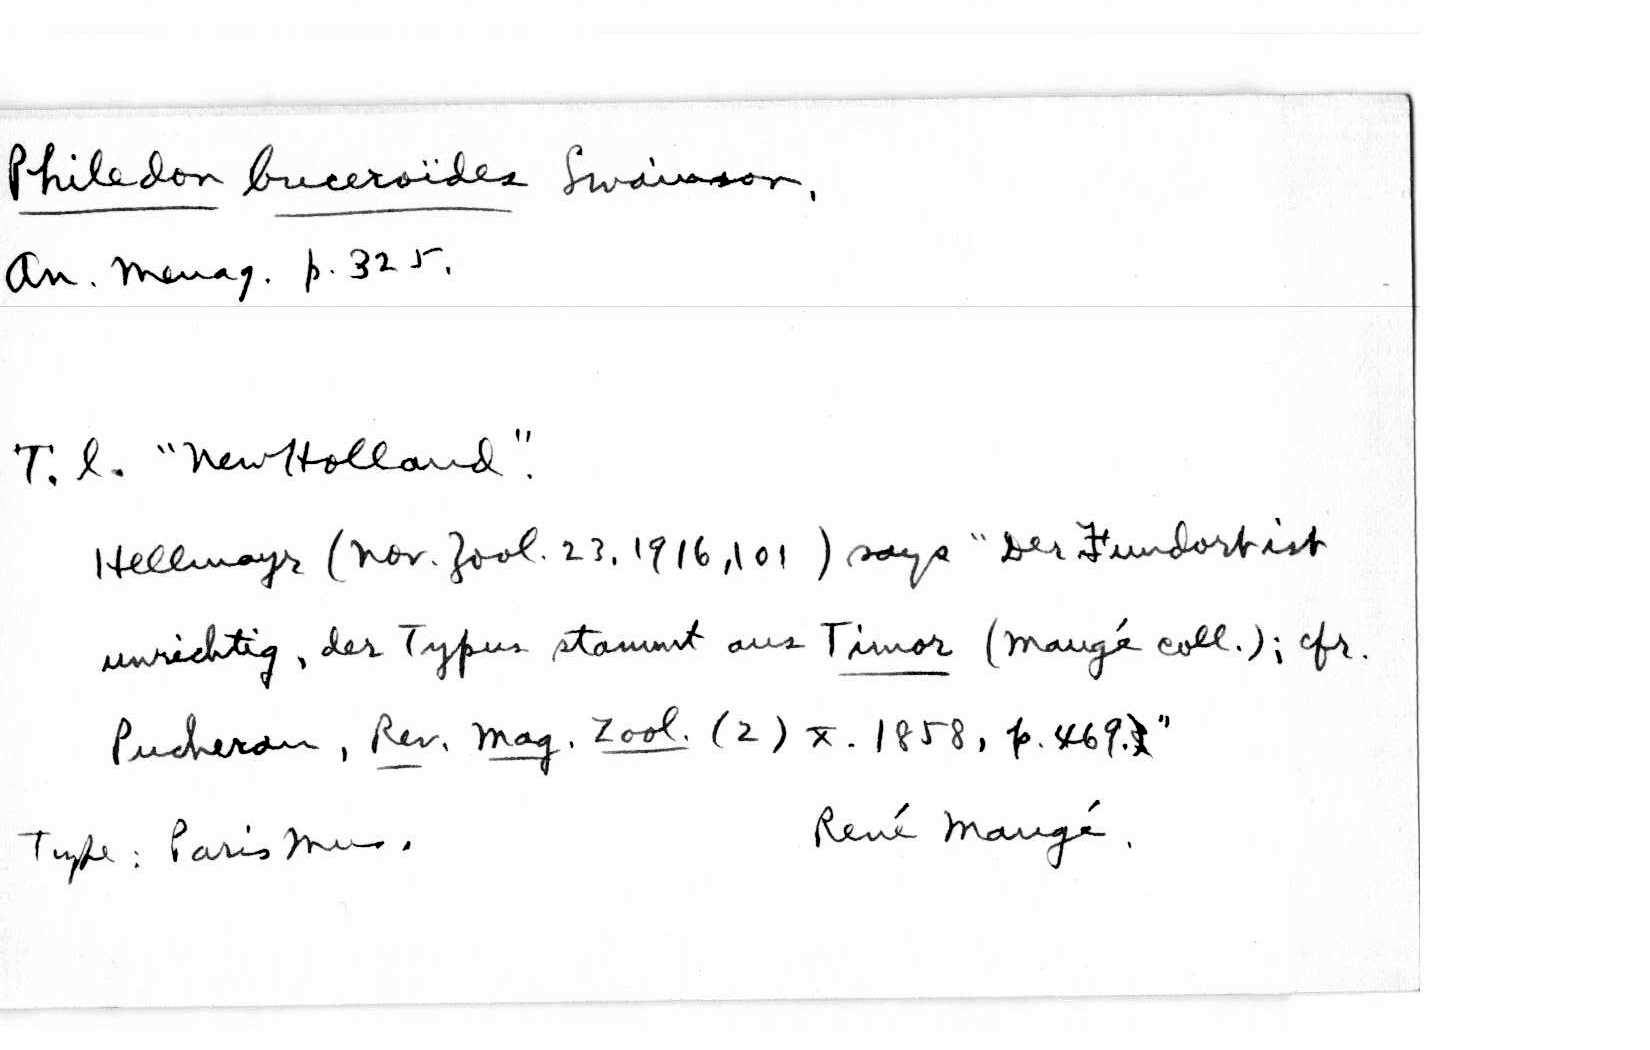 Philedon buceroïdes Swainson,
An. Menag. p. 325.
T. l. "New Holland".
Hellmayr (Nov. Zool. 23, 1916, 101) says "Der Fundort ist
unrichtig, der Typus stammt aus Timor (Maugé coll.); cfr.
Pucheran, Rev. Mag. Zool. (2) X. 1858, p. 469."
Type: Paris Mus.
René Maugé.